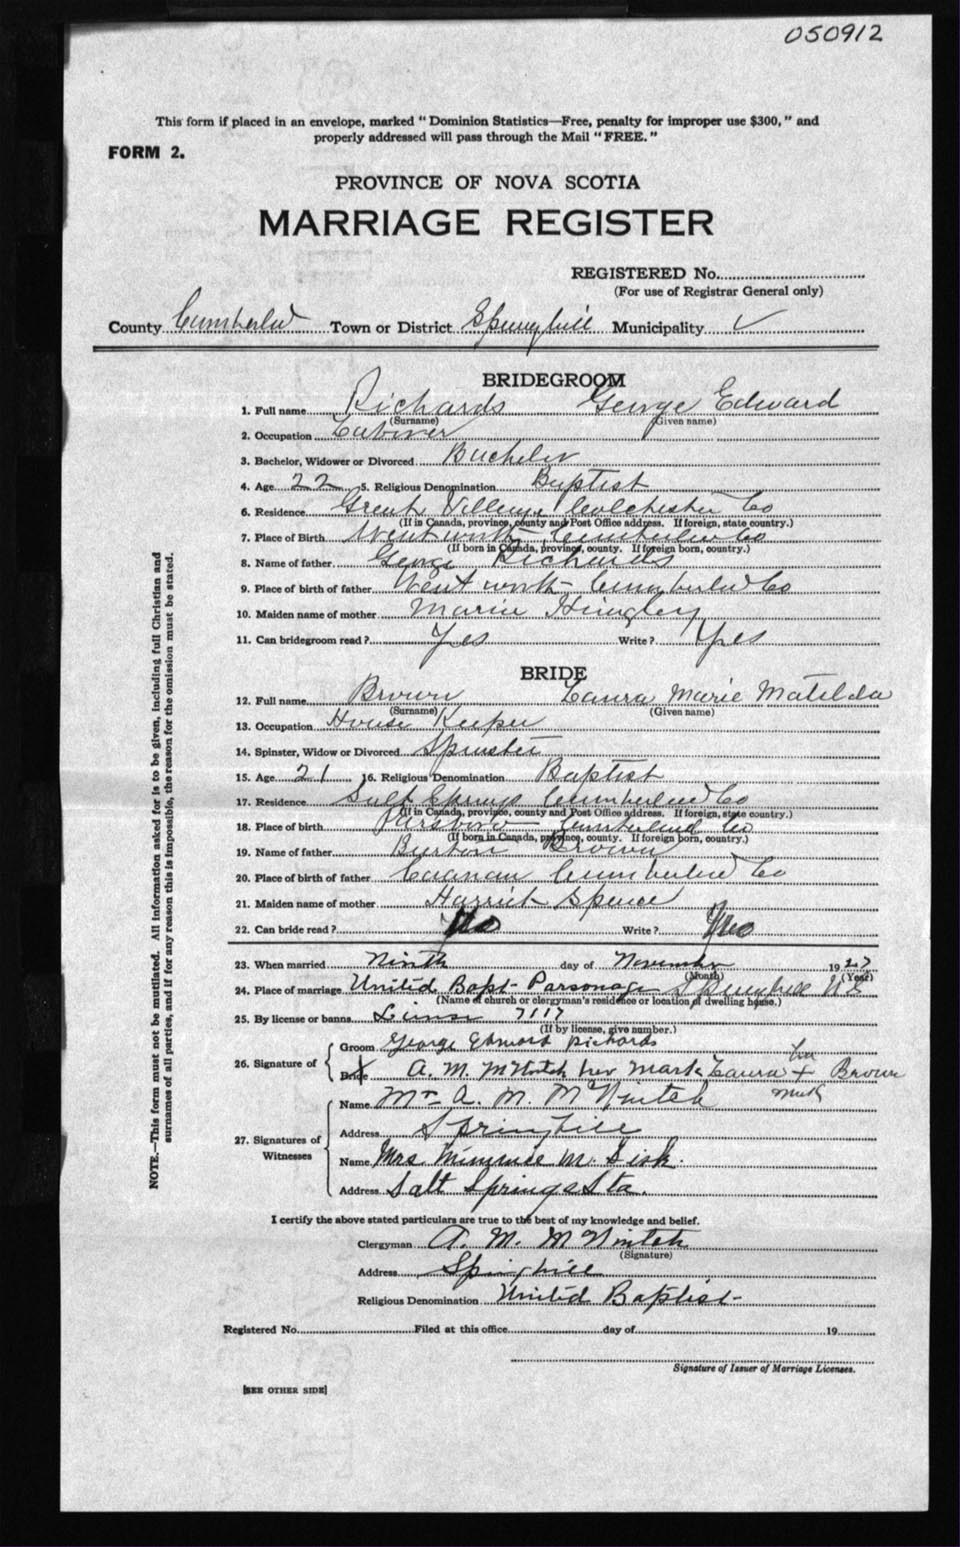 050912
This form if placed in an envelope, marked "Dominion Statistics—Free, penalty for improper use $300," and
properly addressed will pass through the Mail "FREE."
FORM 2.
PROVINCE OF NOVA SCOTIA
MARRIAGE REGISTER
REGISTERED No.
(For use of Registrar General only)
County Cumberland Town or District Springhill Municipality ✓
BRIDEGROOM
1. Full name Richards George Edward
(Surname) (Given name)
2. Occupation
3. Bachelor, Widower or Divorced Bachelor
4. Age 22 5. Religious Denomination Baptist
6. Residence Great Village Colchester Co
(If in Canada, province, county and Post Office address. If foreign, state country.)
7. Place of Birth Wentworth Cumberland Co
(If born in Canada, province, county. If foreign born, country.)
8. Name of father George Richards
9. Place of birth of father Wentworth Cumberland Co
10. Maiden name of mother Marie Hingley
11. Can bridegroom read? Yes Write? Yes
BRIDE
12. Full name Brown Laura Marie Matilda
(Surname) (Given name)
13. Occupation House Keeper
14. Spinster, Widow or Divorced Spinster
15. Age 21 16. Religious Denomination Baptist
17. Residence Salt Springs Cumberland Co
(If in Canada, province, county and Post Office address. If foreign, state country.)
18. Place of birth Parsboro Cumberland Co
(If born in Canada, province, county. If foreign born, country.)
19. Name of father Burton Brown
20. Place of birth of father Canaan Cumberland Co
21. Maiden name of mother Harriet Spence
22. Can bride read? No Write? No
23. When married Ninth day of November 1927
(Month) (Year)
24. Place of marriage United Bapt- Parsonage Springhill N S
(Name of church or clergyman's residence or location of dwelling house.)
25. By license or banns License 7117
(If by license, give number.)
26. Signature of
Groom George Edward Richards
Bride A. M. McNintch her mark Laura her + mark Brown
27. Signatures of Witnesses
Name Mrs A. M. McNintch
Address Springhill
Name Mrs. Minnie M.
Address Salt Springs Sta.
I certify the above stated particulars are true to the best of my knowledge and belief.
Clergyman A. M. McNintch
(Signature)
Address Springhill
Religious Denomination United Baptist
Registered No. Filed at this office day of 19
Signature of Issuer of Marriage Licenses.
[SEE OTHER SIDE]
NOTE.—This form must not be mutilated. All information asked for is to be given, including full Christian and
surnames of all parties, and if for any reason this is impossible, the reason for the omission must be stated.